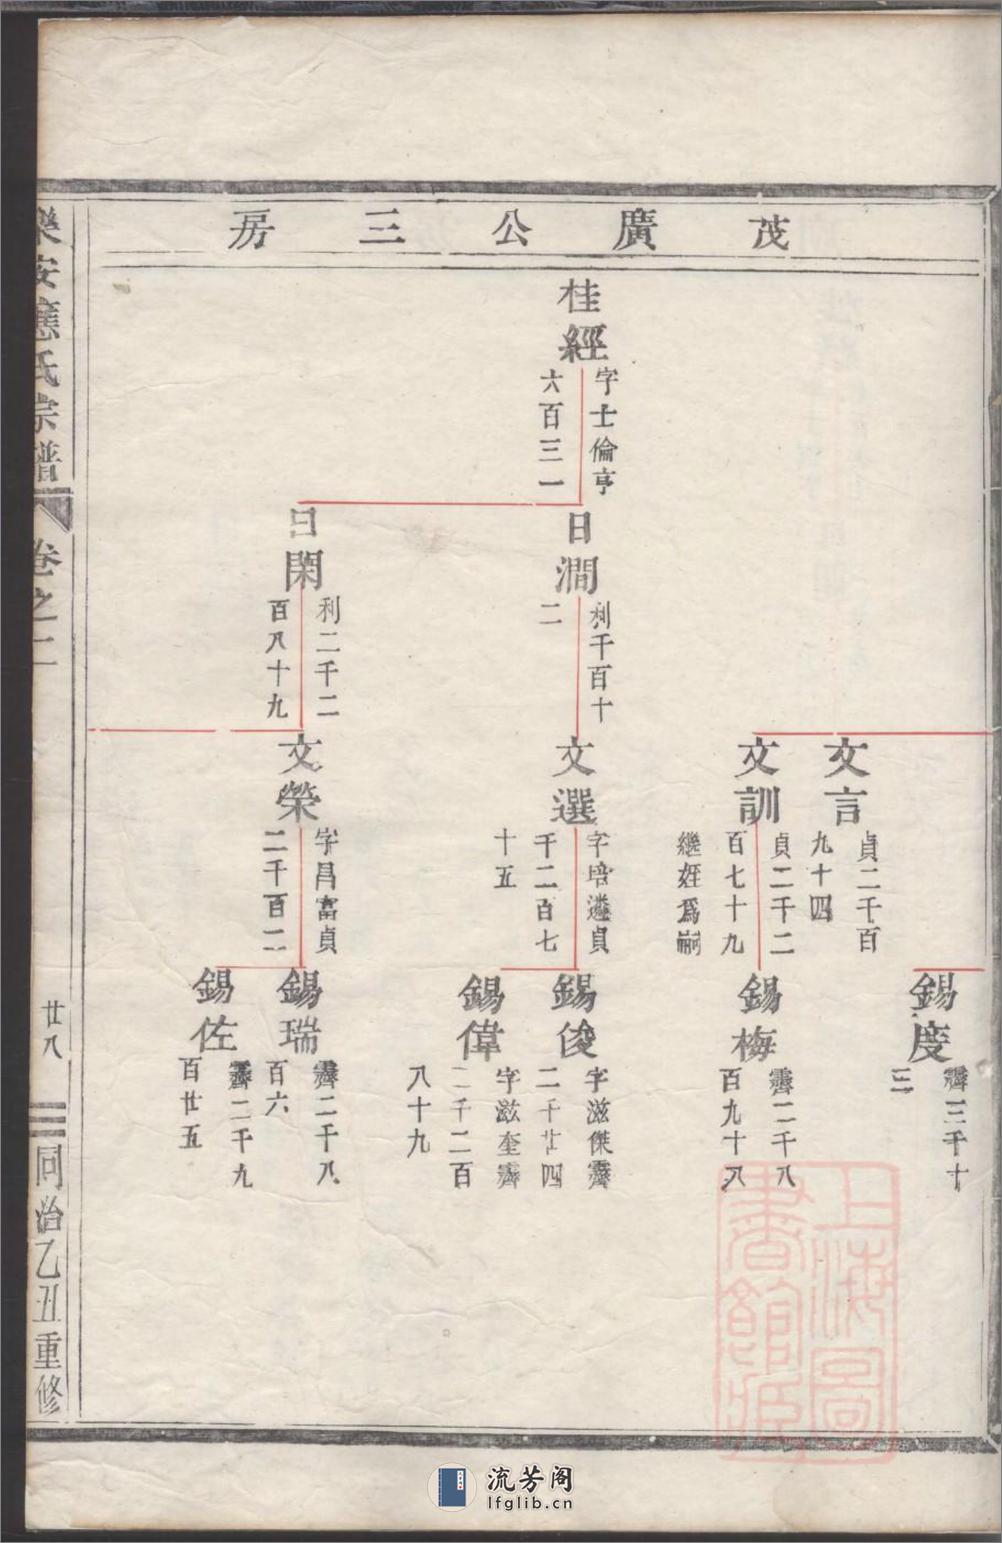 茂廣公三房
桂經
字士倫亨
六百三一
日澗
利千百十
二
日閑
利二千二
百八十九
文言
貞二千百
九十四
文訓
貞二千二
百七十九
繼姪爲嗣
文選
字培遴貞
千二百七
十五
文榮
字昌富貞
二千百二
錫度
霽三千十
三
錫梅
霽二千八
百九十八
錫俊
字滋傑霽
二千廿四
錫偉
字滋奎霽
二千二百
八十九
錫瑞
霽二千八
百六
錫佐
霽二千九
百廿五
樂安應氏宗譜
卷之二
廿八
同治乙丑重修
上海圖
書館藏
流芳阁
lfglib.cn